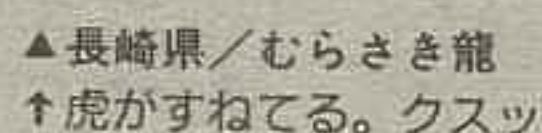 ▲長崎県／むらさき龍
↑虎がすねてる。クスッ